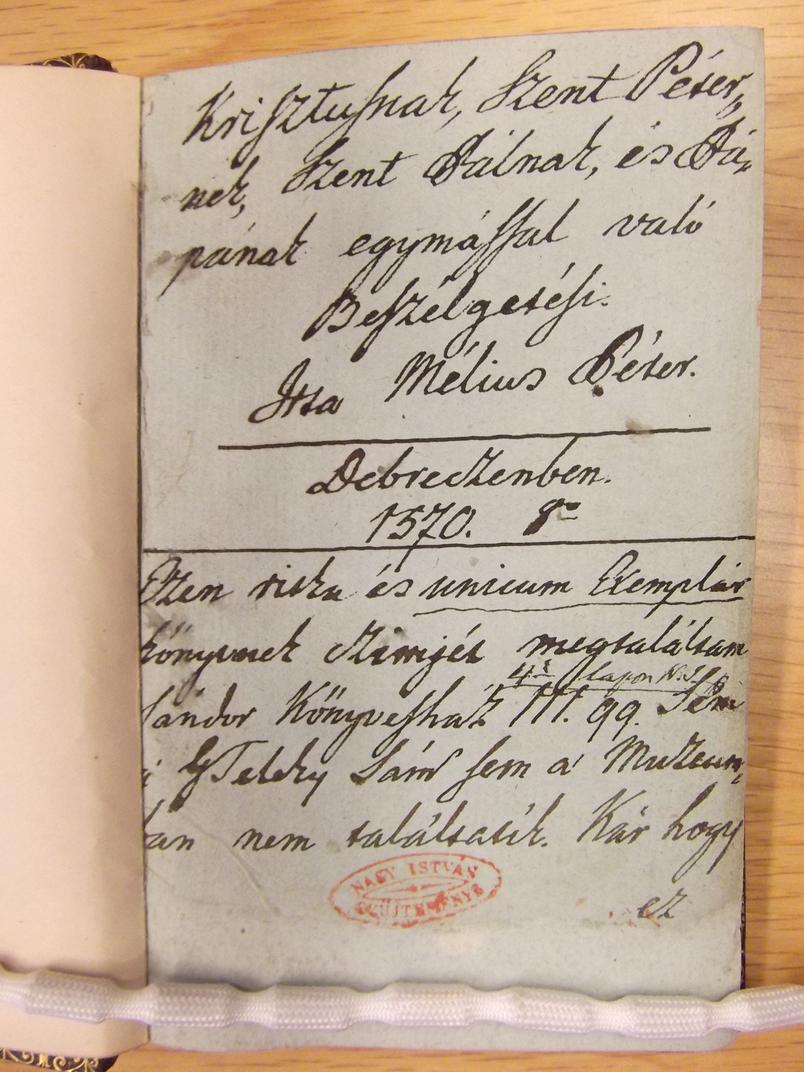 Kriſztuſnak, Szent Péter„
nek, Szent Pálnak, és Pá„
pának egymáſſal való
Beſzélgetéſi.
Irta Mélius Péter.
Debreczenben.
1570. 8
Ezen ritka és unicum Exemplár
könyvnek Czímjét megtaláltam
4 lapon N. 1.
Sándor Könyveſház III. 99. Sem
G Teleky Sám ſem a' Muzeum„
ban nem találtatik. Kár hogy
ez
NAGY ISTVÁN
GYŰJTEMÉNYE